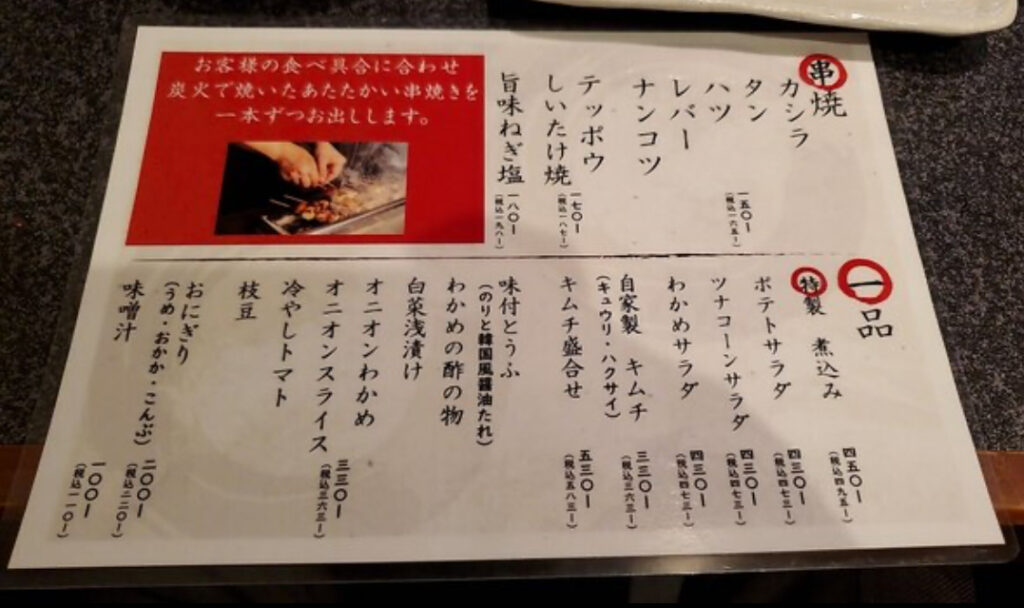 串焼
カシラ
タン
ハツ
レバー
ナンコツ
一五〇ー
(税込一六五ー)
テッポウ
しいたけ焼
一七〇ー
(税込一八七ー)
旨味ねぎ塩
一八〇ー
(税込一九八ー)
お客様の食べ具合に合わせ
炭火で焼いたあたたかい串焼きを
一本ずつお出しします。
一品
特製 煮込み
四五〇ー
(税込四九五ー)
ポテトサラダ
四三〇ー
(税込四七三ー)
ツナコーンサラダ
四三〇ー
(税込四七三ー)
わかめサラダ
四三〇ー
(税込四七三ー)
自家製 キムチ
(キュウリ・ハクサイ)
三三〇ー
(税込三六三ー)
キムチ盛合せ
五三〇ー
(税込五八三ー)
味付とうふ
(のりと韓国風醤油たれ)
わかめの酢の物
白菜浅漬け
オニオンわかめ
オニオンスライス
冷やしトマト
枝豆
三三〇ー
(税込三六三ー)
おにぎり
(うめ・おかか・こんぶ)
二〇〇ー
(税込二二〇ー)
味噌汁
一〇〇ー
(税込一一〇ー)